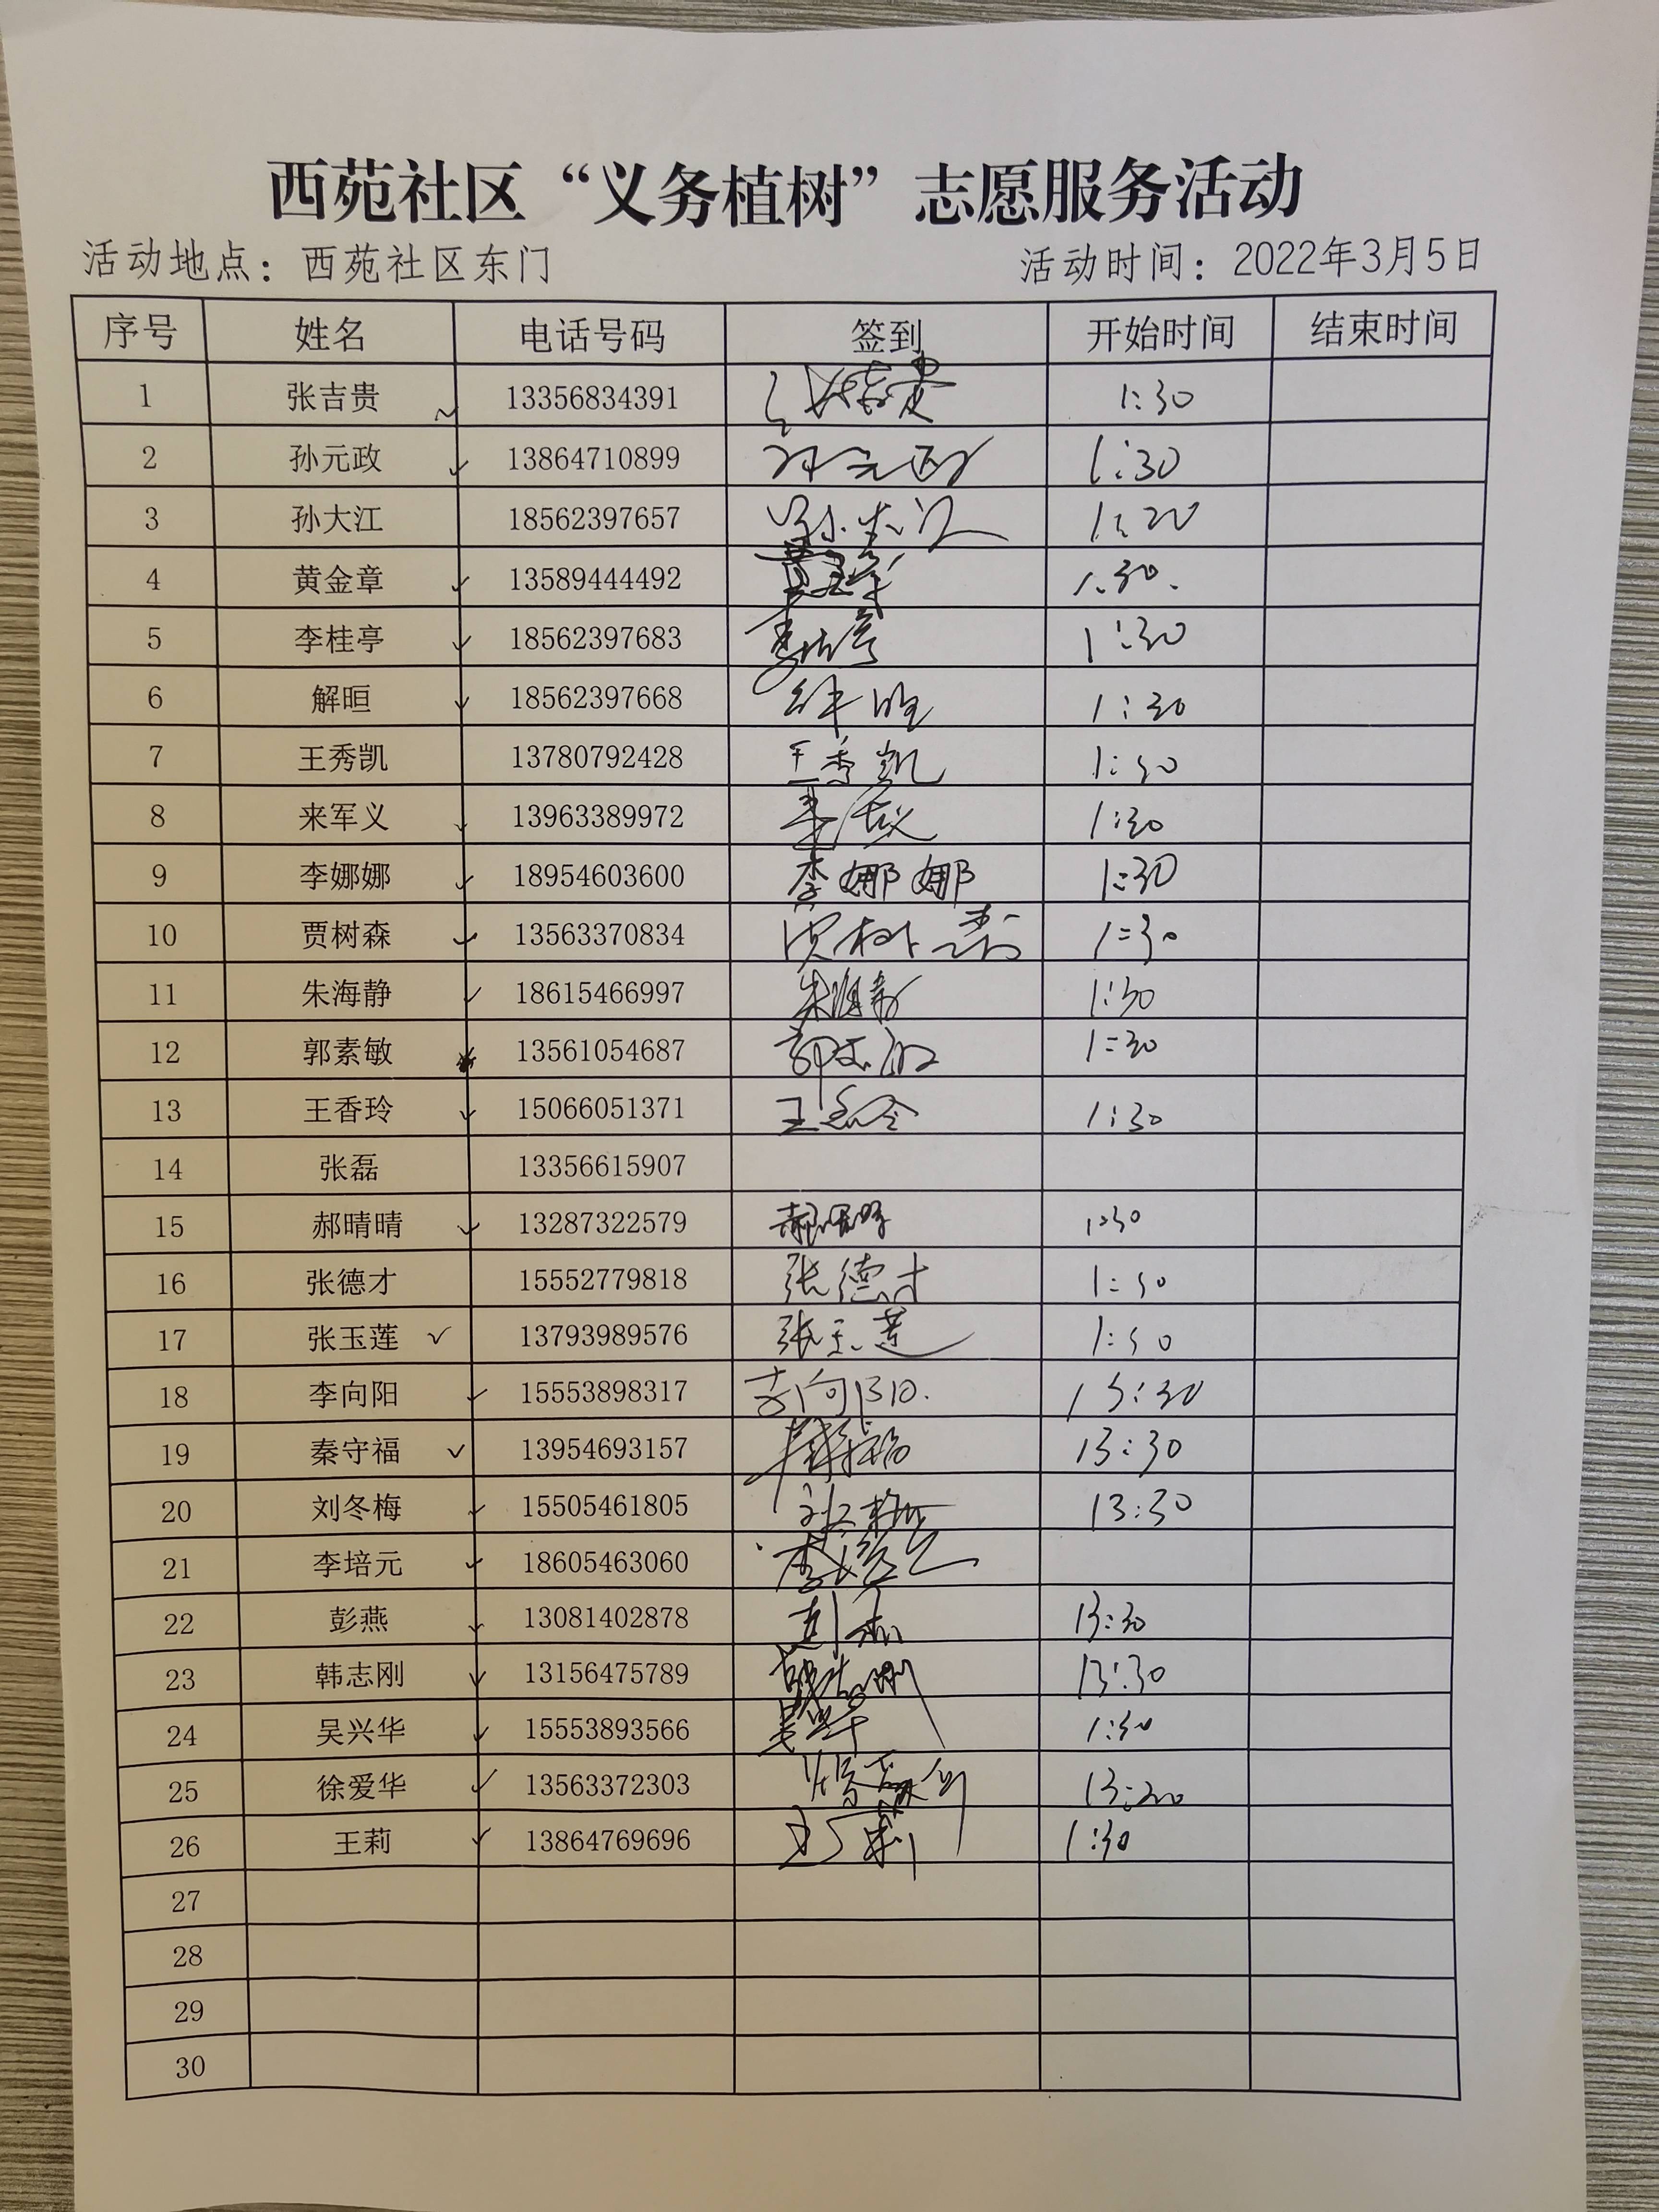 西苑社区“义务植树”志愿服务活动
活动地点：西苑社区东门 活动时间：2022年3月5日
序号 姓名 电话号码 签到 开始时间 结束时间
1 张吉贵 13356834391 张吉贵 1:30
2 孙元政 13864710899 孙元政 1:30
3 孙大江 18562397657 孙大江
4 黄金章 13589444492 黄金章 1:30.
5 李桂亭 18562397683 李桂亭 1:30
6 解晅 18562397668 解晅 1:30
7 王秀凯 13780792428 王秀凯 1:30
8 来军义 13963389972 来军义 1:30
9 李娜娜 18954603600 李娜娜 1:30
10 贾树森 13563370834 贾树森 1:30
11 朱海静 18615466997 朱海静 1:30
12 郭素敏 13561054687 郭素敏 1:30
13 王香玲 15066051371 王香玲 1:30
14 张磊 13356615907
15 郝晴晴 13287322579 郝晴晴 1:30
16 张德才 15552779818 张德才 1:30
17 张玉莲 ✓ 13793989576 张玉莲 1:30
18 李向阳 15553898317 李向阳 13:30
19 秦守福 ✓ 13954693157 秦守福 13:30
20 刘冬梅 15505461805 刘冬梅 13:30
21 李培元 18605463060 李培元
22 彭燕 13081402878 彭燕 13:30
23 韩志刚 13156475789 韩志刚 13:30
24 吴兴华 15553893566 吴兴华 1:30
25 徐爱华 13563372303 徐爱华 13:30
26 王莉 13864769696 王莉 1:30
27
28
29
30